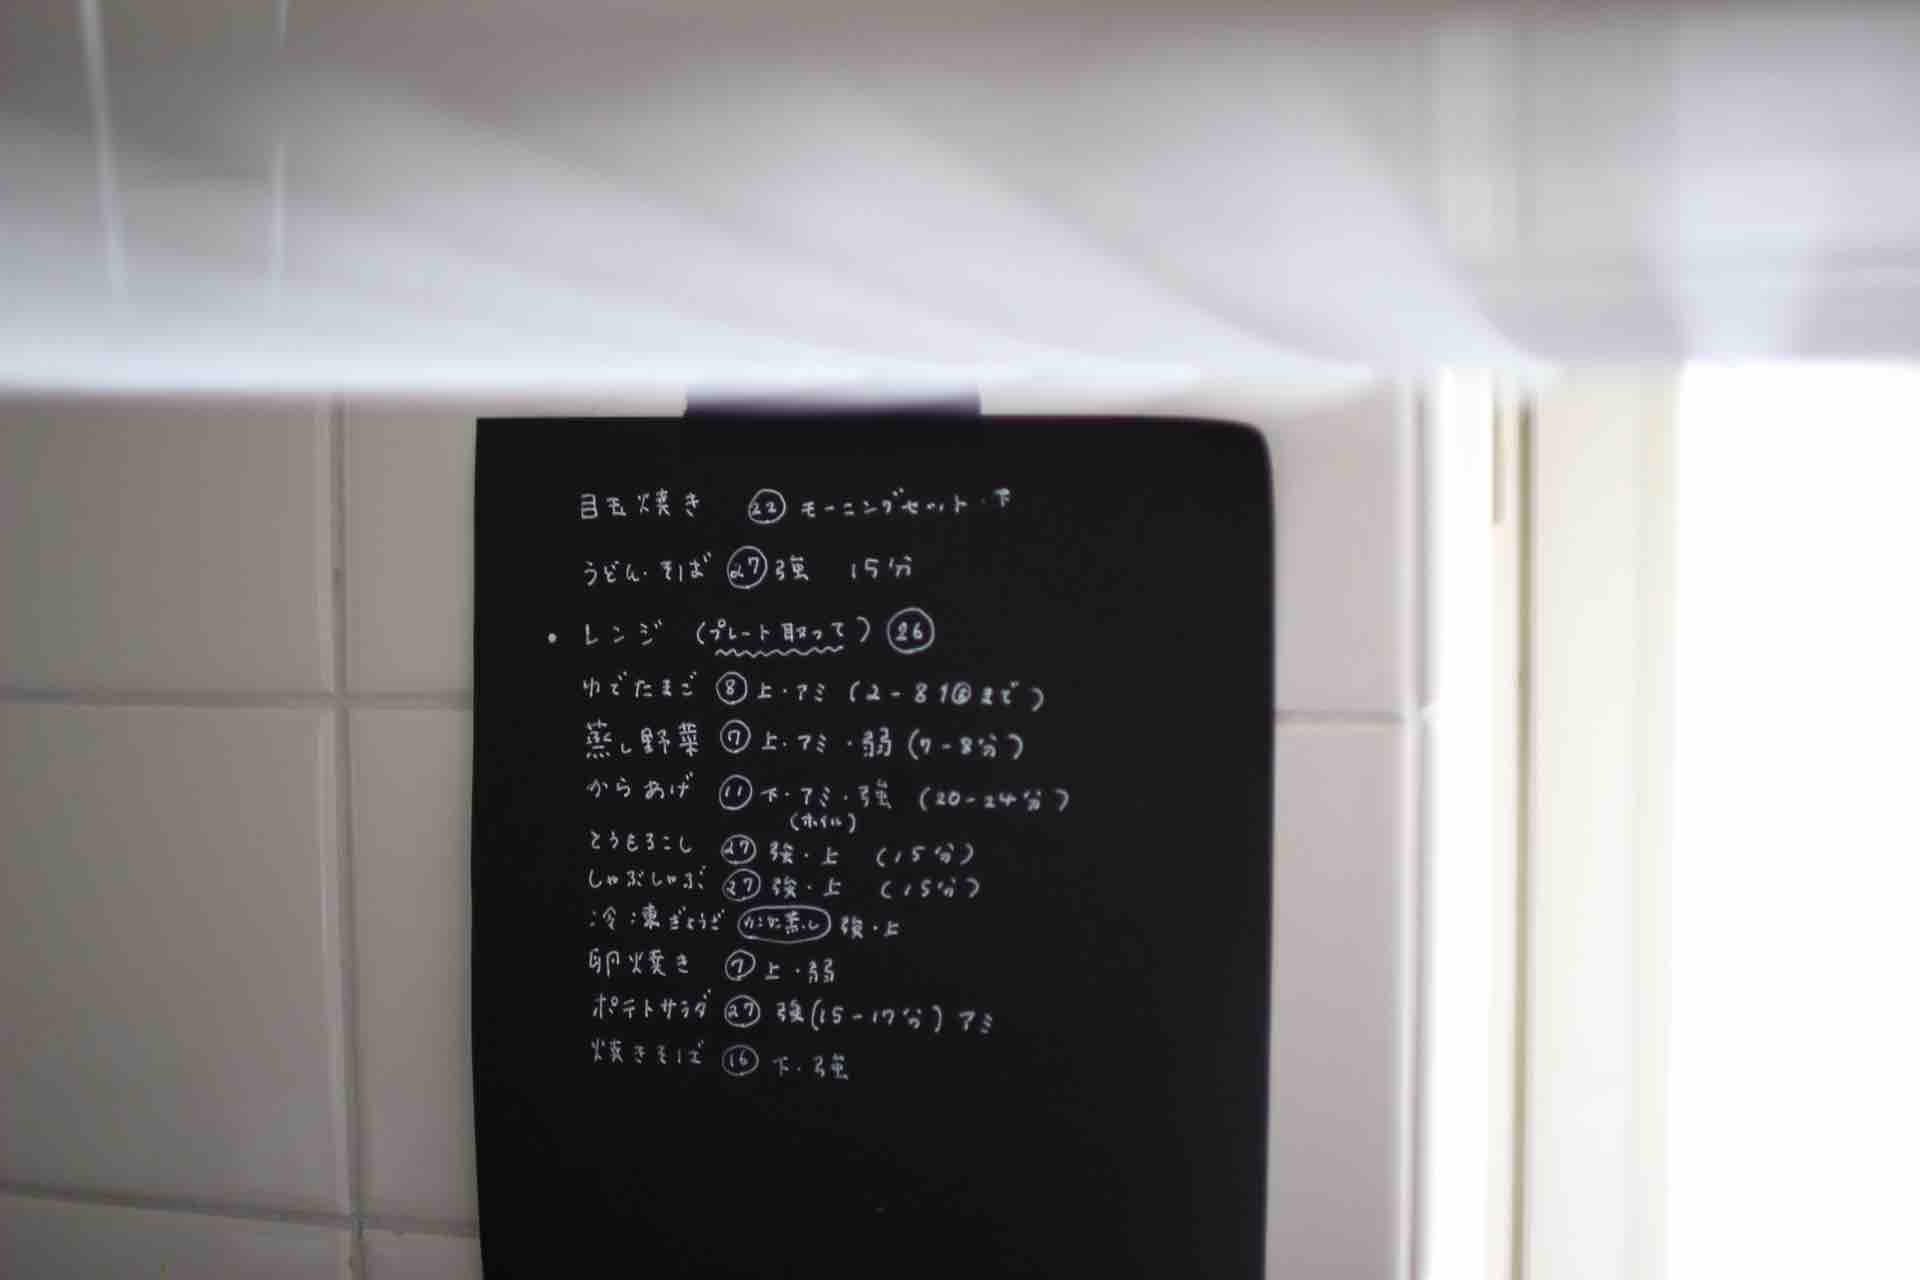 目玉焼き ㉒ モーニングセット・下
うどん・そば ㉗ 強 15分
・レンジ (プレート取って) ㉖
ゆでたまご ⑧ 上・アミ (2-8個まで)
蒸し野菜 ⑦ 上・アミ・弱 (7-8分)
からあげ ⑪ 下・アミ・強 (20-24分)
(ホイル)
とうもろこし ㉗ 強・上 (15分)
しゃぶしゃぶ ㉗ 強・上 (15分)
冷凍ぎょうざ 蒸し 強・上
卵焼き ⑦ 上・弱
ポテトサラダ ㉗ 強(15-17分) アミ
焼きそば ⑯ 下・強